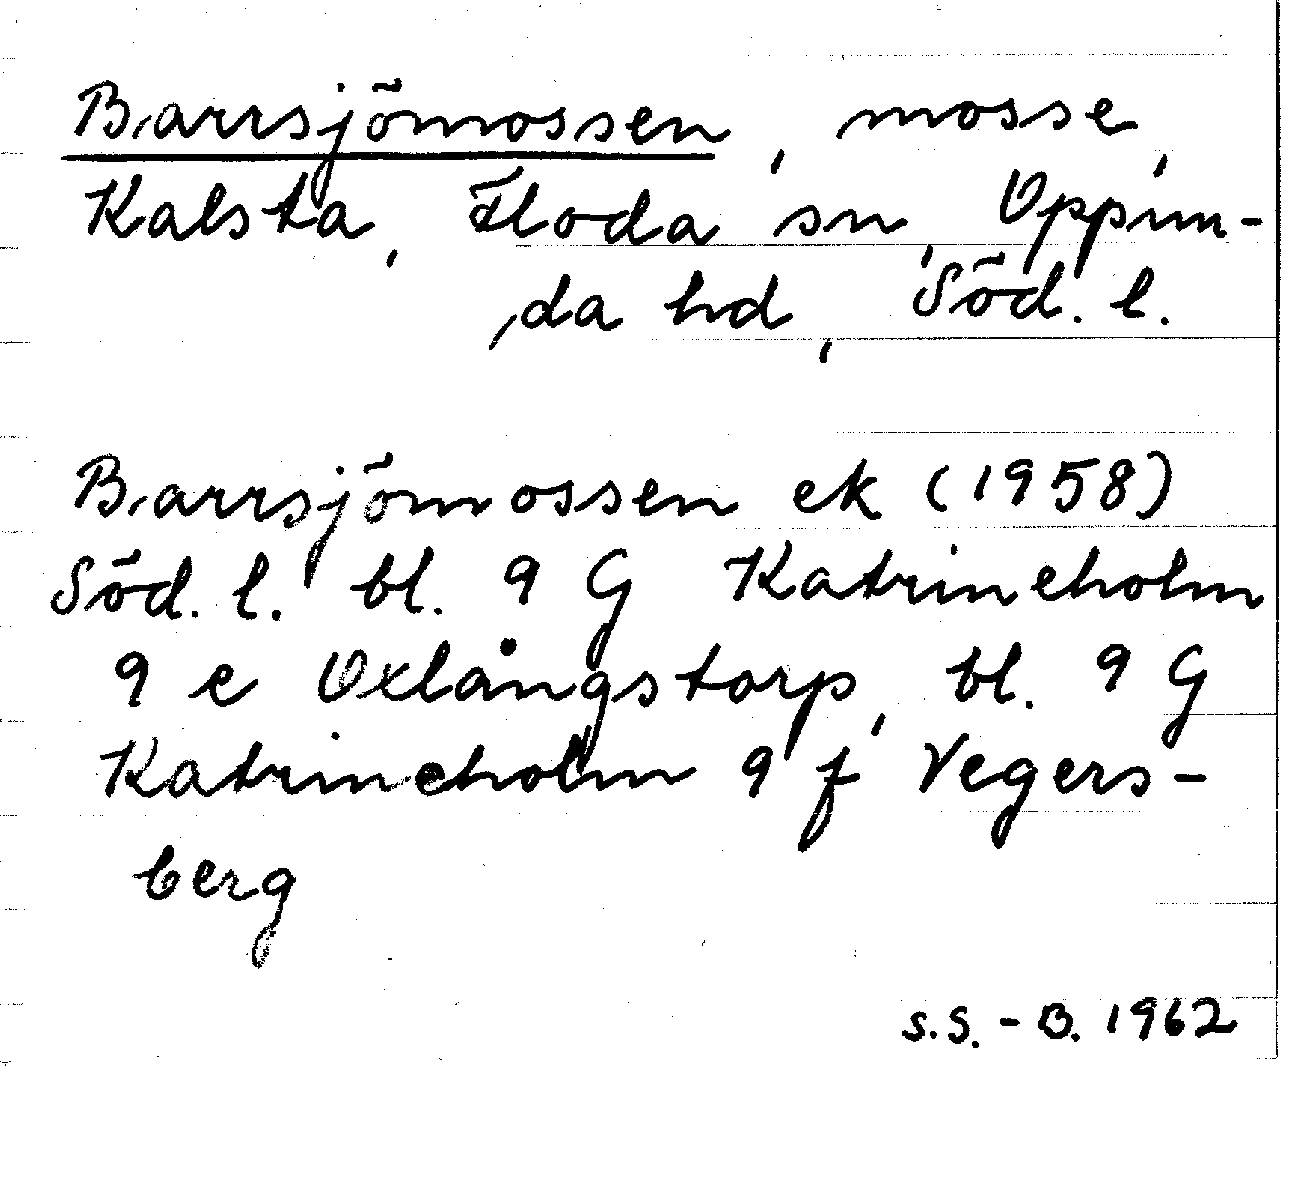 Barrsjömossen, mosse,
Kalsta, Floda sn, Oppun-
da hd, Söd. l.
Barrsjömossen ek (1958)
Söd. l. bl. 9 G Katrineholm
9 e Oxlångstorp, bl. 9 G
Katrineholm 9 f Vegers-
berg
S.S. - B. 1962